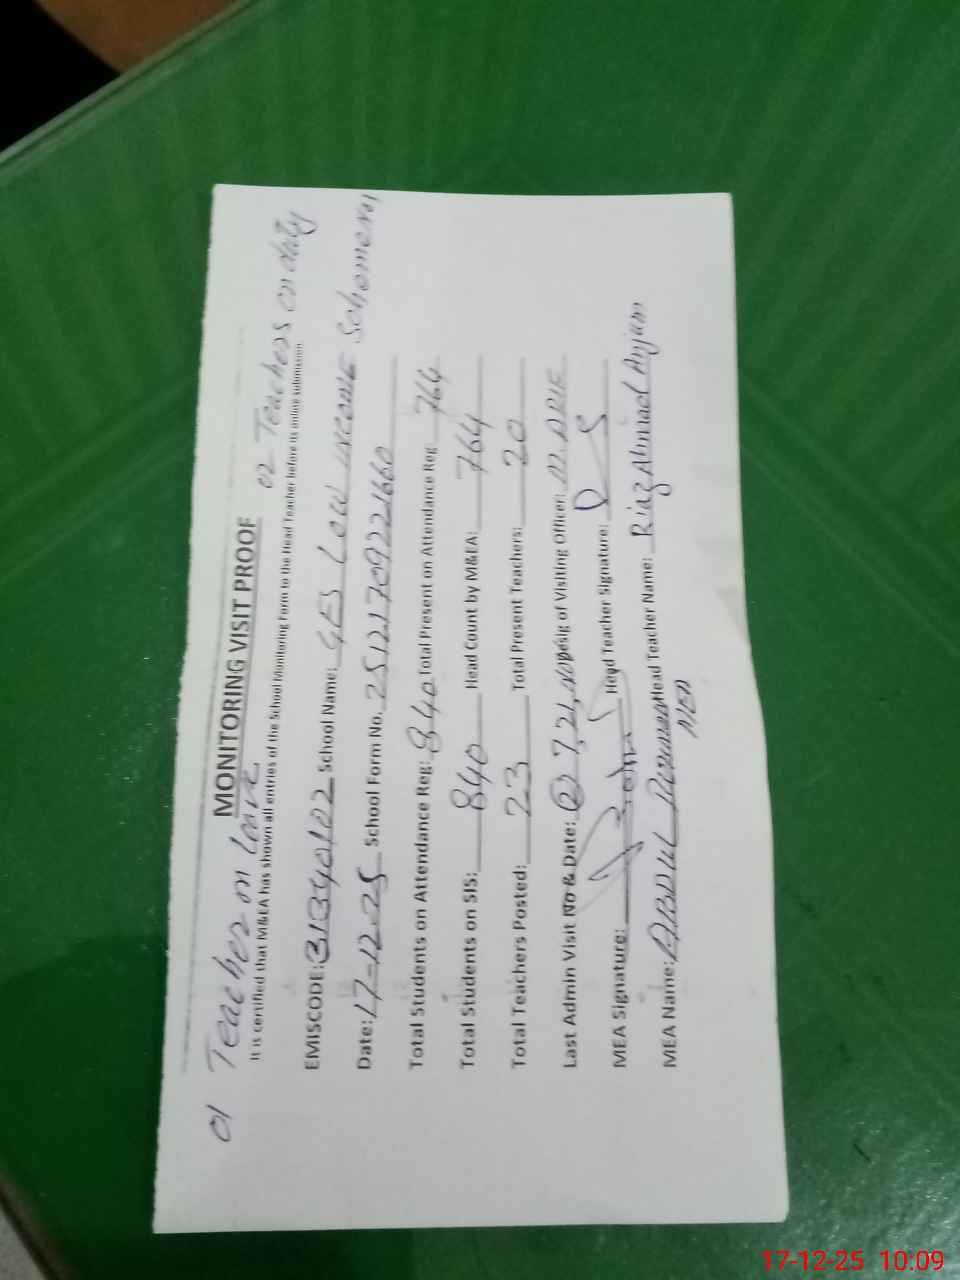 MONITORING VISIT PROOF
01 Teacher on leave
02 Teachers on duty
It is certified that M&EA has shown all entries of the School Monitoring Form to the Head Teacher before its online submission.
EMISCODE: 31340102 School Name: GES LOW INCOME
Date: 17-12-25 School Form No. 25121709221660
Total Students on Attendance Reg: 840 Total Present on Attendance Reg: 764
Total Students on SIS: 840 Head Count by M&EA: 764
Total Teachers Posted: 23 Total Present Teachers: 20
Last Admin Visit No & Date: Desig of Visiting Officer:
MEA Signature: Head Teacher Signature:
MEA Name: ABDUL Head Teacher Name: Riaz Ahmad Anjum
17-12-25 10:09